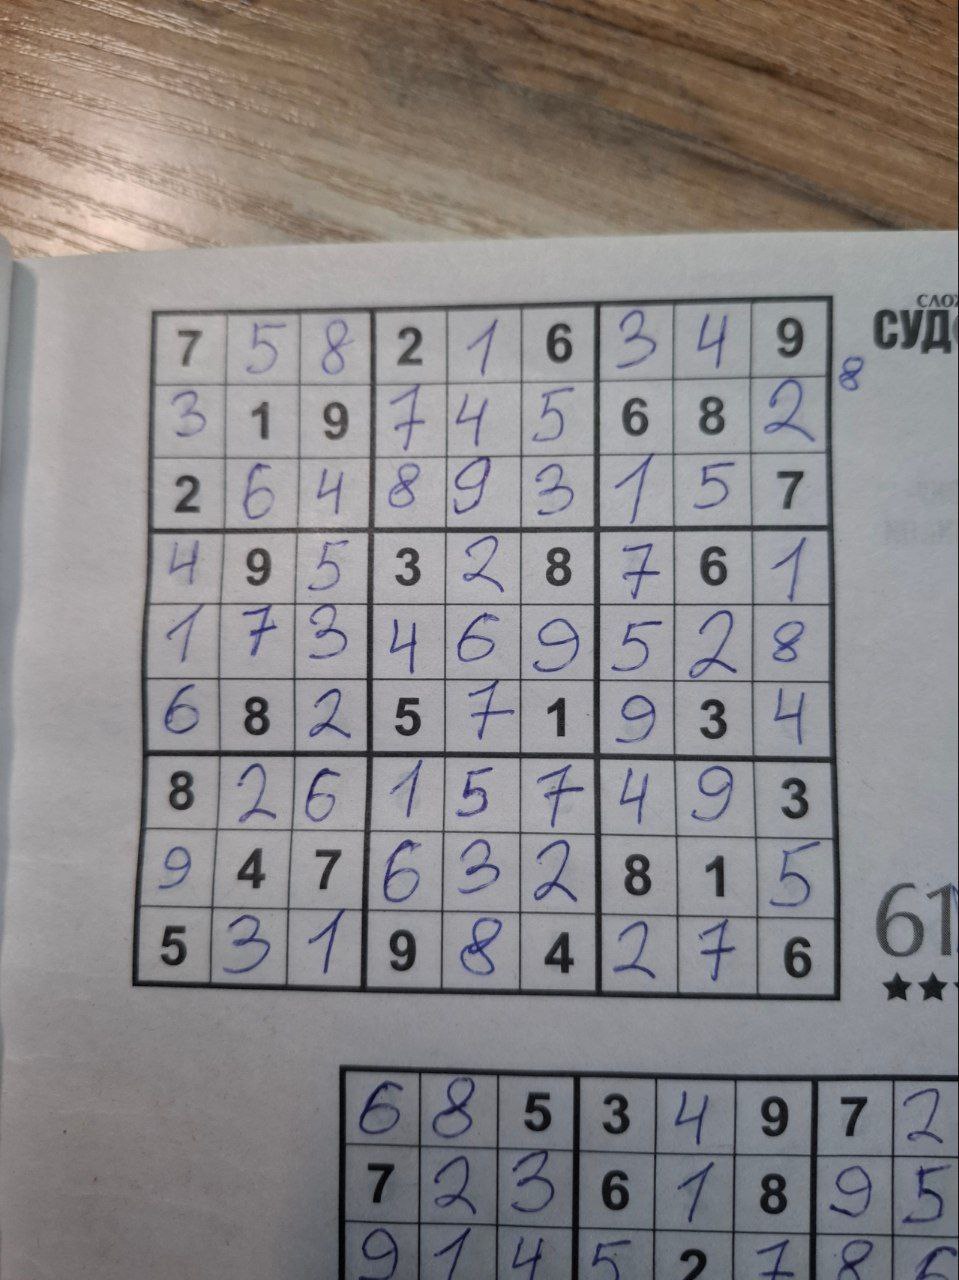 СЛОЖ
СУДО
7 5 8 2 1 6 3 4 9
8
3 1 9 7 4 5 6 8 2
2 6 4 8 9 3 1 5 7
4 9 5 3 2 8 7 6 1
1 7 3 4 6 9 5 2 8
6 8 2 5 7 1 9 3 4
8 2 6 1 5 7 4 9 3
9 4 7 6 3 2 8 1 5
5 3 1 9 8 4 2 7 6
61
6 8 5 3 4 9 7 2
7 2 3 6 1 8 9 5
9 1 4 5 2 7 8 6